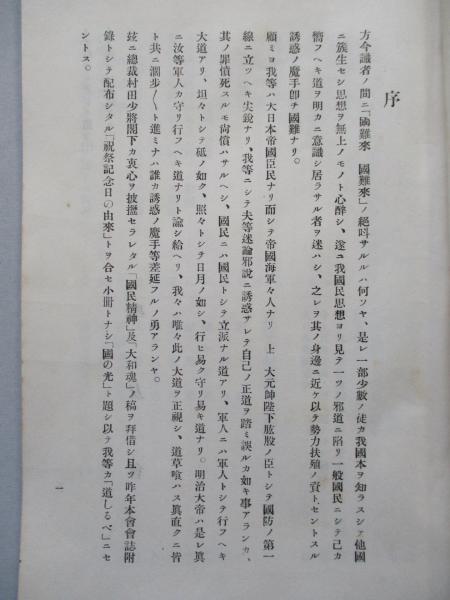 序
方今識者ノ間ニ「國難來　國難來」ノ絕叫サルルハ何ソヤ、是レ一部少數ノ徒カ我國本ヲ知ラスシテ他國
ニ簇生セシ思想ヲ無上ノモノト心醉シ、遂ニ我國民思想ヨリ見テ一ツノ邪道ニ陷リ一般國民ニシテ己カ
憺フヘキ道ヲ明カニ意識シ居ラサル者ヲ迷ハシ、之レヲ其ノ身邊ニ近ケ以テ勢力扶殖ノ資ト、セントスル
誘惑ノ魔手卽チ國難ナリ。
顧ミヨ我等ハ大日本帝國臣民ナリ而シテ帝國海軍々人ナリ　上　大元帥陛下股肱ノ臣トシテ國防ノ第一
線ニ立ツヘキ尖銳ナリ、我等ニシテ夫等迷論邪說ニ誘惑サレテ自己ノ正道ヲ踏ミ誤ルカ如キ事アランカ、
其ノ罪憤死スルモ尙償ハサルヘシ、國民ニハ國民トシテ立派ナル道アリ、軍人ニハ軍人トシテ行フヘキ
大道アリ、坦々トシテ砥ノ如ク、照々トシテ日月ノ如シ、行ヒ易ク守リ易キ道ナリ。明治大帝ハ是レ眞
ニ汝等軍人カ守リ行フヘキ道ナリト諭シ給ヘリ、我々ハ唯々此ノ大道ヲ正視シ、道草喰ハス眞直クニ皆
ト共ニ濶步〳〵ト進ミナハ誰カ誘惑ノ魔手等差延フルノ勇アランヤ。
玆ニ總裁村田少將閣下カ衷心ヲ披攊セラレタル「國民精神」及「大和魂」ノ稿ヲ拜借シ且ツ昨年本會會誌附
錄トシテ配布シタル「祝祭記念日の由來」トヲ合セ小冊トナシ「國の光」ト題シ以テ我等カ「道しるべ」ニセ
ントス。
一